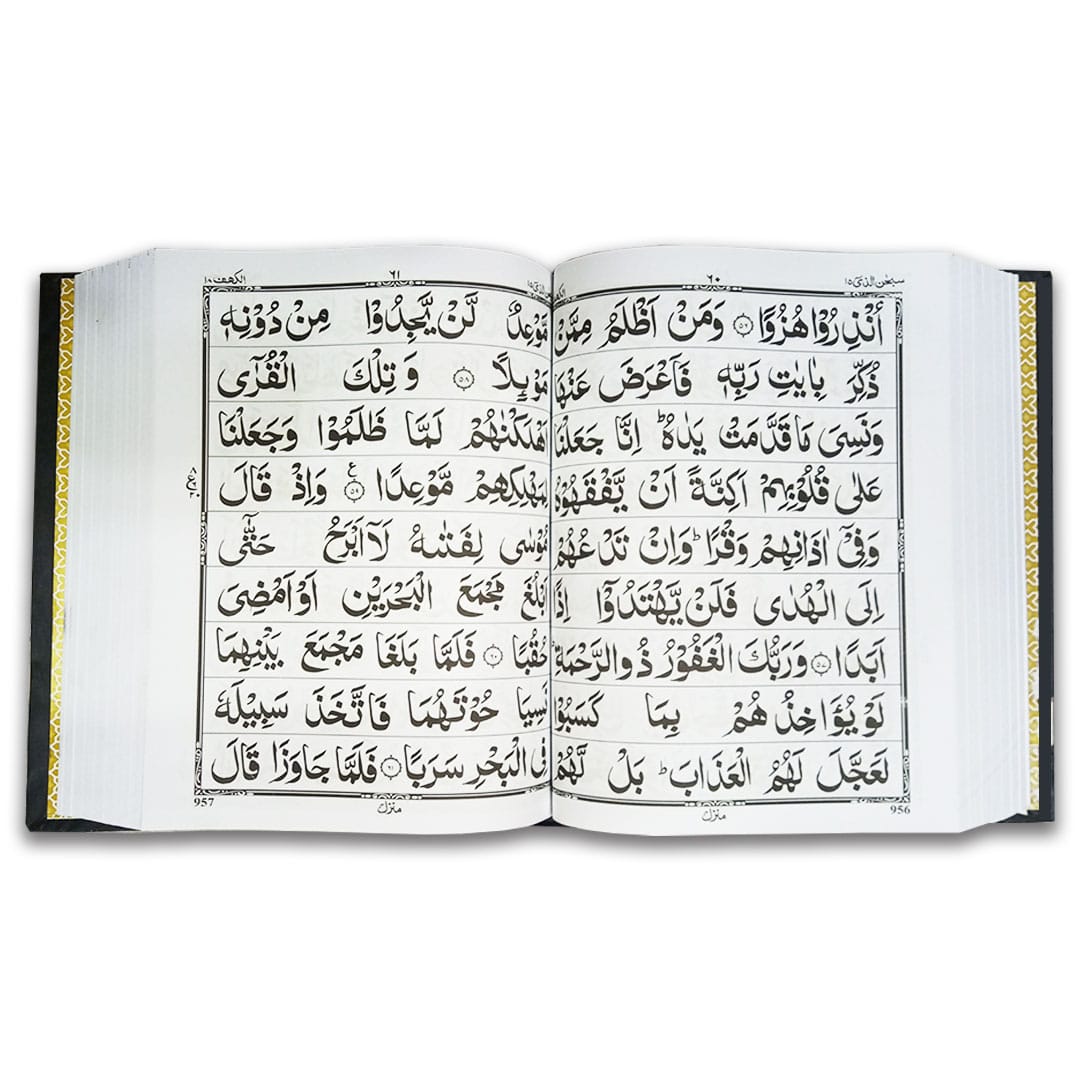 سبحٰن الذی ۱۵
٦٠
اُنْذِرُوْا هُزُوًا ﴿۵۶﴾ وَمَنْ اَظْلَمُ مِمَّنْ
ذُكِّرَ بِاٰيٰتِ رَبِّهٖ فَاَعْرَضَ عَنْهَا
وَنَسِیَ مَا قَدَّمَتْ يَدٰهُ ؕ اِنَّا جَعَلْنَا
عَلٰی قُلُوْبِهِمْ اَكِنَّةً اَنْ يَّفْقَهُوْهُ
وَفِیْۤ اٰذَانِهِمْ وَقْرًا ؕ وَاِنْ تَدْعُهُمْ
اِلَی الْهُدٰی فَلَنْ يَّهْتَدُوْۤا اِذًا
اَبَدًا ﴿۵۷﴾ وَرَبُّكَ الْغَفُوْرُ ذُو الرَّحْمَةِ ؕ
لَوْ يُؤَاخِذُهُمْ بِمَا كَسَبُوْا
لَعَجَّلَ لَهُمُ الْعَذَابَ ؕ بَلْ لَّهُمْ
منزل
956
٦١
الكهف ۱۸
مَّوْعِدٌ لَّنْ يَّجِدُوْا مِنْ دُوْنِهٖ
مَوْىِٕلًا ﴿۵۸﴾ وَتِلْكَ الْقُرٰۤی
اَهْلَكْنٰهُمْ لَمَّا ظَلَمُوْا وَجَعَلْنَا
لِمَهْلِكِهِمْ مَّوْعِدًا ﴿۵۹﴾ ع وَاِذْ قَالَ
مُوْسٰی لِفَتٰىهُ لَاۤ اَبْرَحُ حَتّٰۤی
اَبْلُغَ مَجْمَعَ الْبَحْرَيْنِ اَوْ اَمْضِیَ
حُقُبًا ﴿۶۰﴾ فَلَمَّا بَلَغَا مَجْمَعَ بَيْنِهِمَا
نَسِيَا حُوْتَهُمَا فَاتَّخَذَ سَبِيْلَهٗ
فِی الْبَحْرِ سَرَبًا ﴿۶۱﴾ فَلَمَّا جَاوَزَا قَالَ
منزل
957